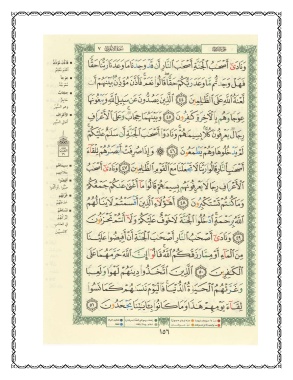 وَنَادَىٰٓ أَصْحَٰبُ ٱلْجَنَّةِ أَصْحَٰبَ ٱلنَّارِ أَن قَدْ وَجَدْنَا مَا وَعَدَنَا رَبُّنَا حَقًّا
فَهَلْ وَجَدتُّم مَّا وَعَدَ رَبُّكُمْ حَقًّا قَالُوا۟ نَعَمْ فَأَذَّنَ مُؤَذِّنٌۢ بَيْنَهُمْ أَن
لَّعْنَةُ ٱللَّهِ عَلَى ٱلظَّٰلِمِينَ ٤٤ ٱلَّذِينَ يَصُدُّونَ عَن سَبِيلِ ٱللَّهِ وَيَبْغُونَهَا
عِوَجًا وَهُم بِٱلْءَاخِرَةِ كَٰفِرُونَ ٤٥ وَبَيْنَهُمَا حِجَابٌ وَعَلَى ٱلْأَعْرَافِ
رِجَالٌ يَعْرِفُونَ كُلًّۢا بِسِيمَىٰهُمْ وَنَادَوْا۟ أَصْحَٰبَ ٱلْجَنَّةِ أَن سَلَٰمٌ عَلَيْكُمْ
لَمْ يَدْخُلُوهَا وَهُمْ يَطْمَعُونَ ٤٦ وَإِذَا صُرِفَتْ أَبْصَٰرُهُمْ تِلْقَآءَ
أَصْحَٰبِ ٱلنَّارِ قَالُوا۟ رَبَّنَا لَا تَجْعَلْنَا مَعَ ٱلْقَوْمِ ٱلظَّٰلِمِينَ ٤٧ وَنَادَىٰٓ أَصْحَٰبُ
ٱلْأَعْرَافِ رِجَالًا يَعْرِفُونَهُم بِسِيمَىٰهُمْ قَالُوا۟ مَآ أَغْنَىٰ عَنكُمْ جَمْعُكُمْ
وَمَا كُنتُمْ تَسْتَكْبِرُونَ ٤٨ أَهَٰٓؤُلَآءِ ٱلَّذِينَ أَقْسَمْتُمْ لَا يَنَالُهُمُ
ٱللَّهُ بِرَحْمَةٍ ٱدْخُلُوا۟ ٱلْجَنَّةَ لَا خَوْفٌ عَلَيْكُمْ وَلَآ أَنتُمْ تَحْزَنُونَ
٤٩ وَنَادَىٰٓ أَصْحَٰبُ ٱلنَّارِ أَصْحَٰبَ ٱلْجَنَّةِ أَنْ أَفِيضُوا۟ عَلَيْنَا
مِنَ ٱلْمَآءِ أَوْ مِمَّا رَزَقَكُمُ ٱللَّهُ قَالُوٓا۟ إِنَّ ٱللَّهَ حَرَّمَهُمَا عَلَى
ٱلْكَٰفِرِينَ ٥٠ ٱلَّذِينَ ٱتَّخَذُوا۟ دِينَهُمْ لَهْوًا وَلَعِبًا
وَغَرَّتْهُمُ ٱلْحَيَوٰةُ ٱلدُّنْيَا فَٱلْيَوْمَ نَنسَىٰهُمْ كَمَا نَسُوا۟
لِقَآءَ يَوْمِهِمْ هَٰذَا وَمَا كَانُوا۟ بِـَٔايَٰتِنَا يَجْحَدُونَ ٥١
١٥٦